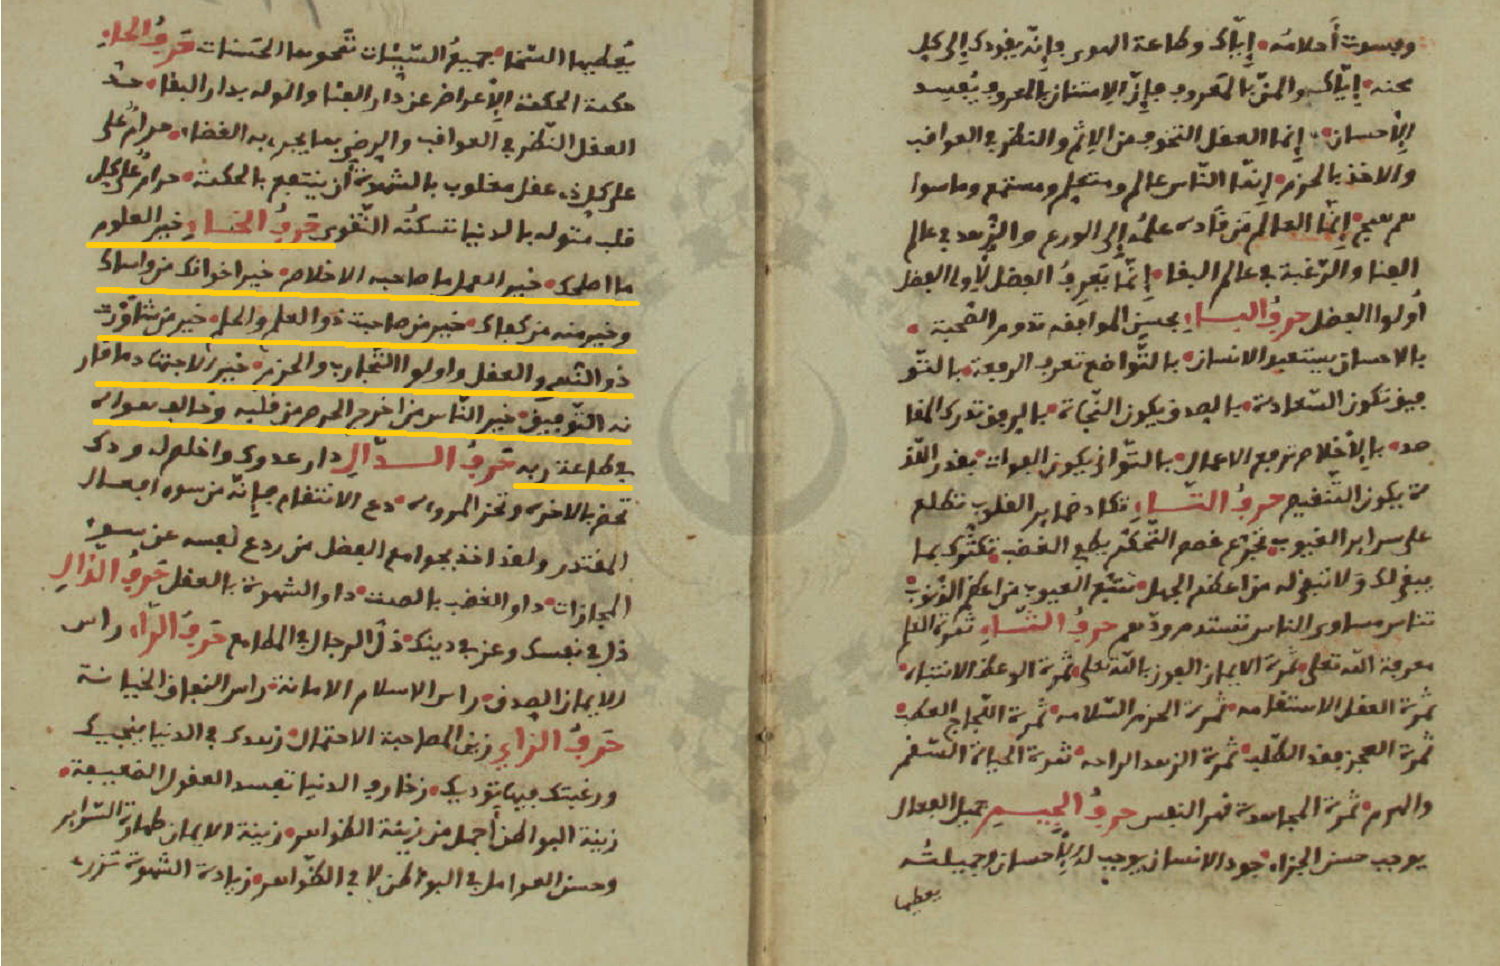 وحسوت أحلامه • إيّاك وطاعة الهوى فإنّه يقودك إلى كل
محنة • إيّاك والمنّ بالمعروف فإنّ الامتنان بالمعروف يُفسد
الإحسان • إنما العقل التجوب من الإثم والنظر في العواقب
والاخذ بالحزم • إنما النّاس عالم ومتعلم ومستمع وما سوا
هم همج • إنّما العالم من قاده علمُه إلى الورع والزّهد في عالم
الفنا والرّغبة في عالم البقا • إنّما يَعرِفُ الفضل لأولي الفضل
أُولوا الفضل حرفُ البــاءِ بحسن الموافقه تدوم الصّحبة •
بالاحسان يستعبد الانسان • بالتّواضع تعرف الرفعة • بالتّو
فيق تكون السّعادة • بالصدق يكون النّجاة • بالرفق تدرك المقا
صد • بالإخلاص ترفع الاعمال • بالتّواني يكون الفوات • بقدر اللّذ
ة يكون التّنغيص حرفُ التّــاءِ تكاد ضماير القلوب تطلع
على سراير الغيوب • تجرّع غصص التّحلّم يطفي الغضب • تكثّرك بما
يبقى لك ولا تبقى له من اعظم الجهل • تتبّع العيوب من اعظم الذّنوب •
تناس مساوي الناس تستدم ودّهم حرفُ الثّــاءِ ثمرة العلم
معرفة الله تعلى • ثمرة الايمان الفوز بالله تعلى • ثمرة الوعظ الانتباه •
ثمرة العقل الاستقامه • ثمرة الحزم السّلامه • ثمرة اللّجاج العطب •
ثمرة العجز فقد الطّلبه • ثمرة الزهد الراحه • ثمرة الحياة السّقم
والهرم • ثمرة المجاهدة قهر النفس حرفُ الجيــمِ جميل الفعال
يوجب حسن الجزاء • جود الانسان يوجب له الإحسان وجميلــه
يعطيها
يُعطيها السّخا • جميعُ السّيّئات تمحوها الحسنات حَرفُ الحاءِ
حكمة الحكمة الإعراض عن دار الفنا والوله بدار البقا • حــدّ
العقل النّظر في العواقب والرضى بما يجرى به القضاء • حرامٌ على
على كل ذي عقل مغلوب بالشهوة أن ينتفع بالحكمة • حرامٌ على كل
قلب متوله بالدنيا تسكنه التّقوى حَرفُ الخــاءِ خير العلوم
ما اصلحك • خير العمل ما صاحبه الاخلاص • خير اخوانك من واساك
وخير منه من كفاك • خير من صاحبت ذوا العلم والحلم • خير من شاوَرت
ذو النّهى والعقل واولوا التّجارب والحزم • خير الاجتهاد ما قار
نه التّوفيق • خير النّاس من اخرج الحرص من قلبه وخالف هواه
في طاعة ربه حَرفُ الــدّالِ دار عدوك واخلص لودك
تحفظ الاخوه وتحز المروه • دع الانتقام فإنّه من سوء افعــال
المقتدر ولقد اخذ بجوامع الفضل من ردع نفسه عن سوء
المجازات • داو الغضب بالصمت • داو الشهوة بالعقل حَرفُ الذّالِ
ذل في نفسك وعز في دينك • ذلّ الرجال في المطامع حَرفُ الرّاءِ راس
الايمان الصدق • راس الاسلام الامانة • راس النفاق الخيانــة
حَرفُ الزايِ زين المصاحبة الاحتمال • زهدك في الدنيا ينجيك
ورغبتك فيها تؤذيك • زخارف الدنيا تفسد العقول الضعيفة •
زينة البواطن أجمل من زينة الظواهر • زينة الايمان طهارة السّراير
وحسن العوامل في البواطن لا في الظّواهر • زيادة الشهوة تزرى